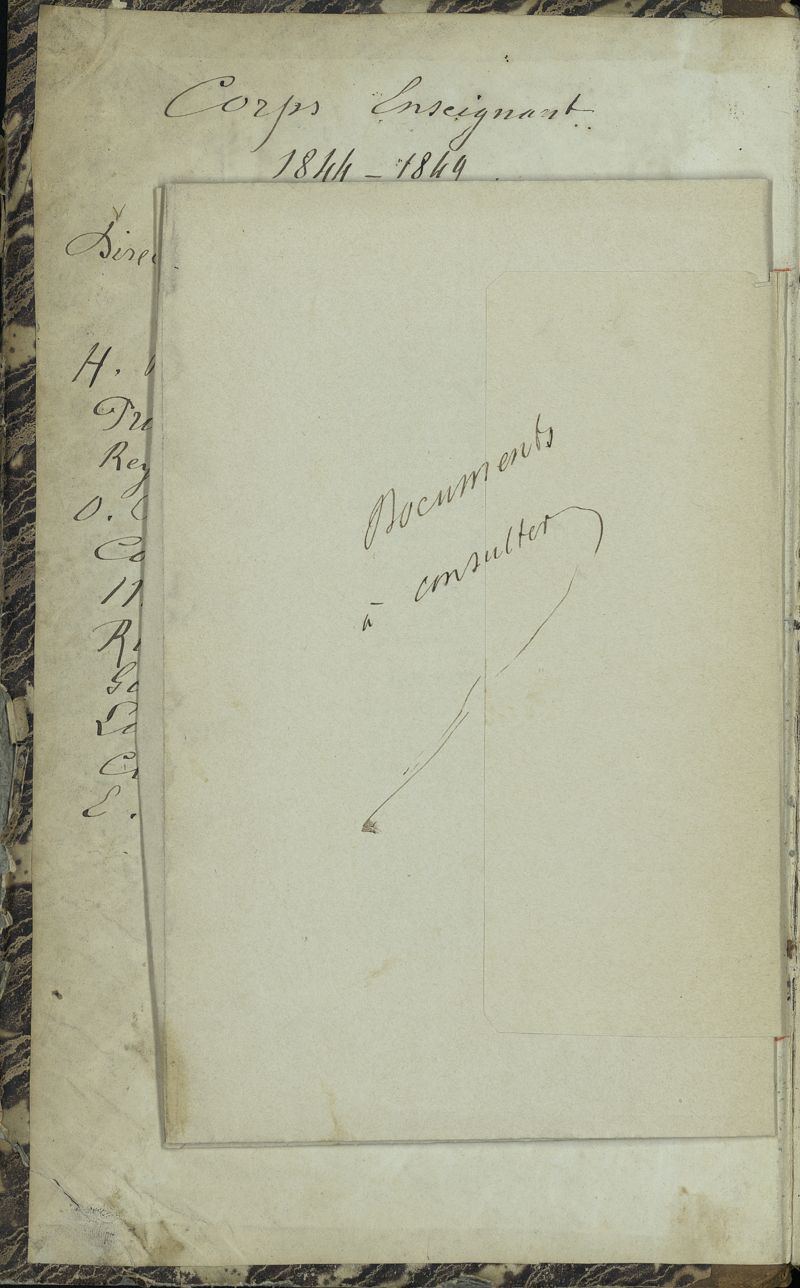 Corps Enseignant
1844 - 1849.
Direc
H.
Fr
Rey
O. C
Co
H
R
So
Co
Cr
E.
Documents
à consulter